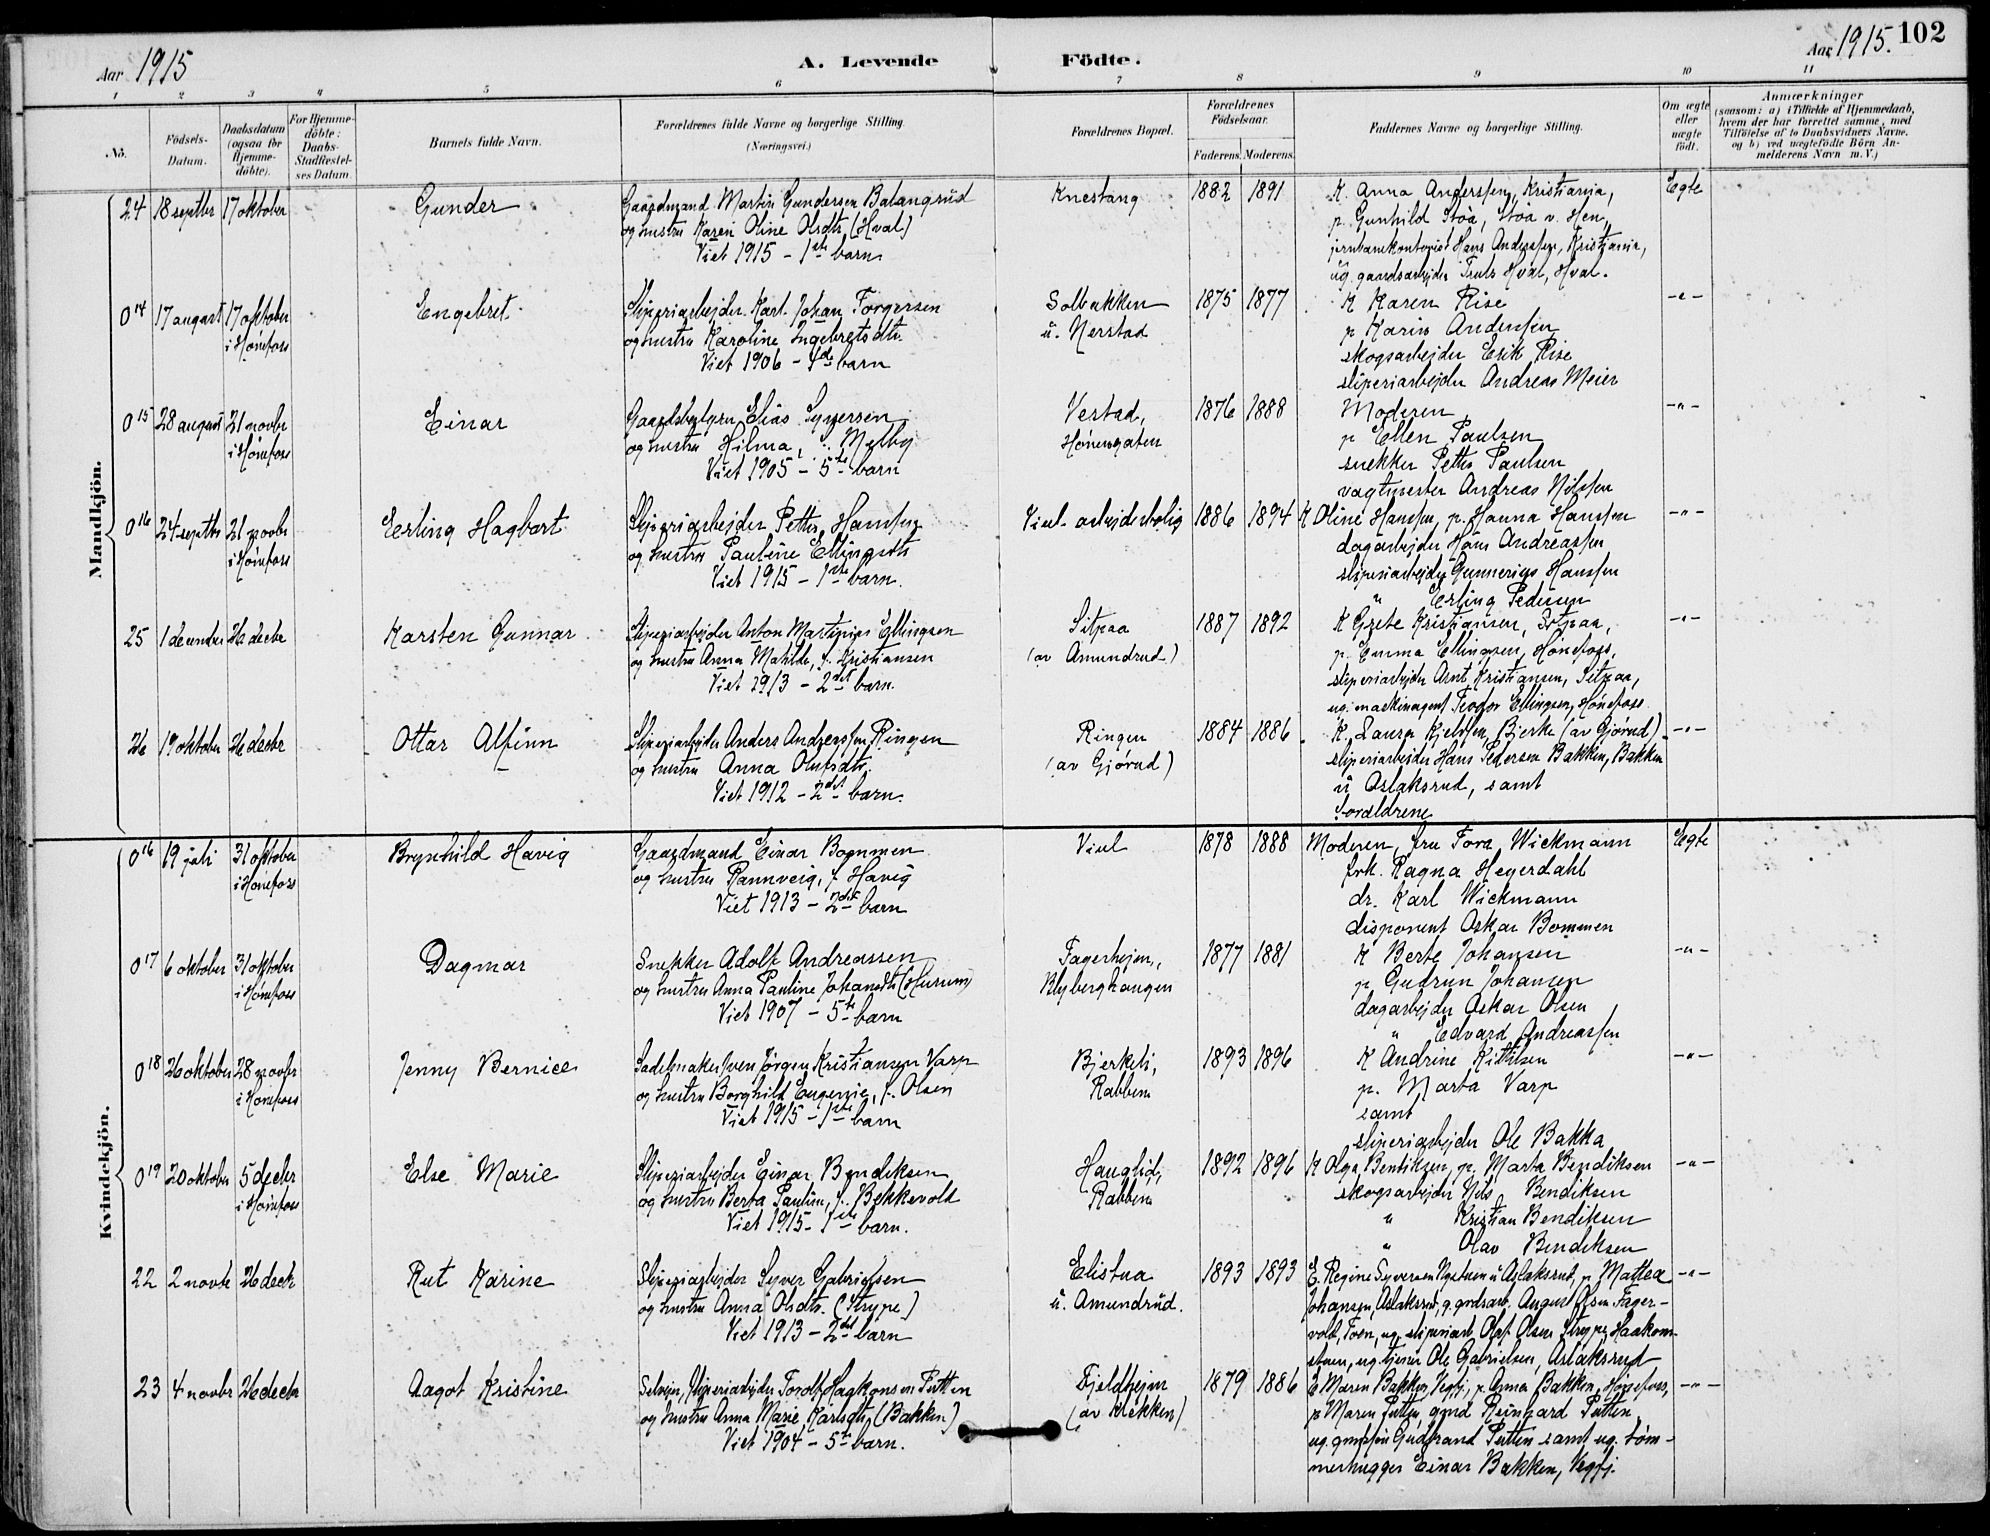 Aar 1915
A. Levende Födte.
Aar 1915. 102
1 2 3 4 5 6 7 8 9 10 11
No.
Födsels-Datum.
Daabsdatum (ogsaa for Hjemme-döbte).
For Hjemme-döbte: Daabs-Stadfæstel-ses Datum.
Barnets fulde Navn.
Forældrenes fulde Navne og borgerlige Stilling.
(Næringsvei.)
Forældrenes Bopæl.
Forældrenes Födselsaar.
Faderens. Moderens.
Faddernes Navne og borgerlige Stilling.
Om ægte eller uægte födt.
Anmærkninger
(saasom: a) i Tilfælde af Hjemmedaab,
hvem der har forrettet samme, med
Tilföielse af to Daabsvidners Navne.
og b) ved uægtefödte Börn An-
melderens Navn m. V.)
Mandkjön.
24 18 septbr 17 oktober Gunder
Gaardmand Martin Gundersen Balangrud
og hustru Karen Oline Olsdtr. (Hval)
Viet 1915 - 1ste barn
Knestang 1882 1891
K. Anna Anderssen, Kristiania,
p. Gunhild Stöa, Stöa v. Hen,
jernbanekontorist Hans Anderssen, Kristiania,
ug. gaardsarbejder Truls Hval, Hval.
Egte
014 17 august 17 oktober i Hönefoss Engebret
Sliperiarbejder Karl Johan Torgersen
og hustru Karoline Ingebretsdtr.
Viet 1906 - 4de barn
Solbakken u. Nerstad 1875 1877
K Karen Rise
p Karin Andersen
skogsarbejder Erik Rise
sliperiarbejder Andreas Meier
-"-
015 28 august 21 novbr i Hönefoss Einar
Gaardsbestyrer Elias Syversen
og hustru Hilma, f. Melby
Viet 1905 - 5te barn
Vestad, Hönengaten 1876 1888
Moderen
p Ellen Paulsen
snekker Petter Paulsen
vagtmester Andreas Nilssen
-"-
016 24 septbr 21 novbr i Hönefoss Erling Hagbart
Sliperiarbejder Petter Hanssen
og hustru Pauline Ellingsdtr
Viet 1915 - 1ste barn.
Viul arbejderbolig 1886 1894
K Oline Hanssen, p. Hanna Hanssen
dagarbejder Hans Andreassen
sliperiarbejder Gunnerius Hanssen
" Erling Pedersen
-"-
25 1 december 26 decbr Karsten Gunnar
Sliperiarbejder Anton Martinius Ellingsen
og hustru Anna Matilde, f. Kristiansen
Viet 1913 - 2det barn.
Sitpaa (av Amundrud) 1887 1892
K Grete Kristiansen, Sitpaa,
p. Emma Ellingsen, Hönefoss,
sliperiarbejder Arnt Kristiansen, Sitpaa,
ug. maskinagent Teodor Ellingsen, Hönefoss
-"-
26 19 oktober 26 decbr Ottar Alfinn
Sliperiarbejder Anders Anderssen Ringen
og hustru Anna Olufsdtr.
Viet 1912 - 2det barn.
Ringen (av Gjörud) 1884 1886
K. Laura Kjelssen, Bjerke (av Gjörud)
sliperiarbejder Hans Pedersen Bakken, Bakken
u Oslaksrud, samt
forældrene
-"-
Kvindekjön.
016 19 juli 31 oktober i Hönefoss Brynhild Havig
Gaardmand Einar Bommen
og hustru Rannveig, f. Havig
Viet 1913 - 2det barn
Viul 1878 1888
Moderen, fru Tora Wickmann
frk. Ragna Heyerdahl
dr. Karl Wickmann
disponent Oskar Bommen
Egte
017 6 oktober 31 oktober i Hönefoss Dagmar
Snekker Adolf Andreassen
og hustru Anna Pauline Johansdtr (Hurum)
Viet 1907 - 5te barn
Fagerhejm, Blyberghaugen 1877 1881
K Berte Johansen
p Gudrun Johansen
dagarbejder Oskar Olsen
" Edvard Andreassen
-"-
018 26 oktober 28 novbr i Hönefoss Jenny Bernice
Sadelmaker Iver Jörgen Kristiansen Varp
og hustru Borghild Eugenie, f. Olsen
Viet 1915 - 1ste barn
Bjerkeli, Rabben 1893 1896
K Andrine Kittilsen
p. Marta Varp
samt
sliperiarbejder Ole Bakka
-"-
019 20 oktober 5 decbr i Hönefoss Else Marie
Sliperiarbejder Einar Bendiksen
og hustru Berta Pauline, f. Bekkevold
Viet 1915 - 1ste barn.
Hauglid, Rabben 1892 1896
K Olga Bentiksen, p. Marta Bendiksen
skogsarbejder Nils Bendiksen
" Kristian Bendiksen
" Olav Bendiksen
-"-
22 2 novbr 26 decbr Rut Karine
Sliperiarbejder Syver Gabrielsen
og hustru Anna Olsdtr. (Strype)
Viet 1913 - 2det barn
Elistua u. Amundrud. 1893 1893
E. Regine Syversen Nystuen u Aslaksrud, p Mattea
Johansen, Aslaksrud, g. grdsarb. August Olsen Fager-
vold, Toen, ug. sliperiarb. Olaf Olsen Strype, Haakon-
stuen, ug. tjener Ole Gabrielsen, Aslaksrud
-"-
23 4 novbr 26 decbr Aagot Kristine
Selvejer, sliperiarbejder Torolf Haakonsen Putten
og hustru Anna Marie Karlsdtr. (Bakken)
Viet 1904 - 5te barn.
Fjeldhejm (av Klekken) 1879 1886
E Maren Bakken, Vegfj., p. Anna Bakken, Hönefoss,
p Maren Putten, gmd Reinhard Putten,
ug. Gudbrand Putten samt ug. töm-
merhugger Einar Bakken, Vegfj.
-"-